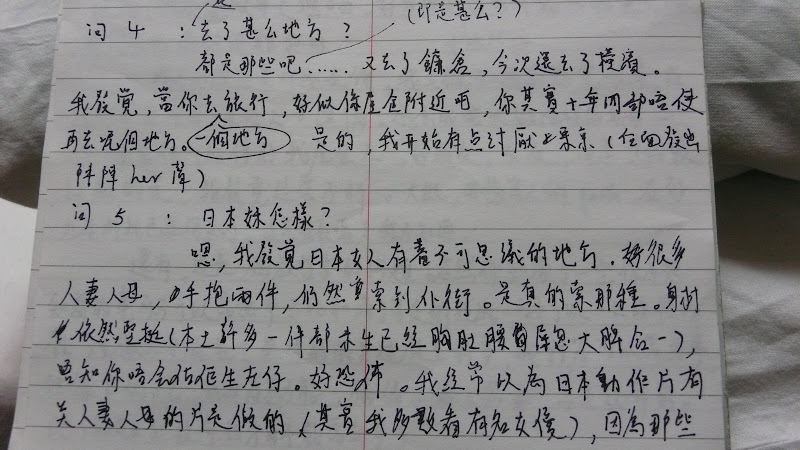 問4 : 去了甚么地方? (即是甚么?)
都是那些吧…… 又去了鎌倉,今次還去了橫濱。
我發覺,當你去旅行,好似係屋企附近吧,你其實十年內都唔使
再去呢個地方。一個地方 是的,我開始有点討厭上東京(在回發出
陣陣her聲)
问5 : 日本妹怎樣?
嗯,我發覺日本女人有着不可思議的地方。好很多
人妻人母,手抱兩件,仍然索到仆街。是真的索那種。身材
依然堅挺(本土許多一件都未生已經胸肚腰大髀合一),
當知你唔會估佢生左仔。好恐怖。我經常以為日本動作片有
关人妻人母的片是做的(其實我多數看有名女優),因為那些